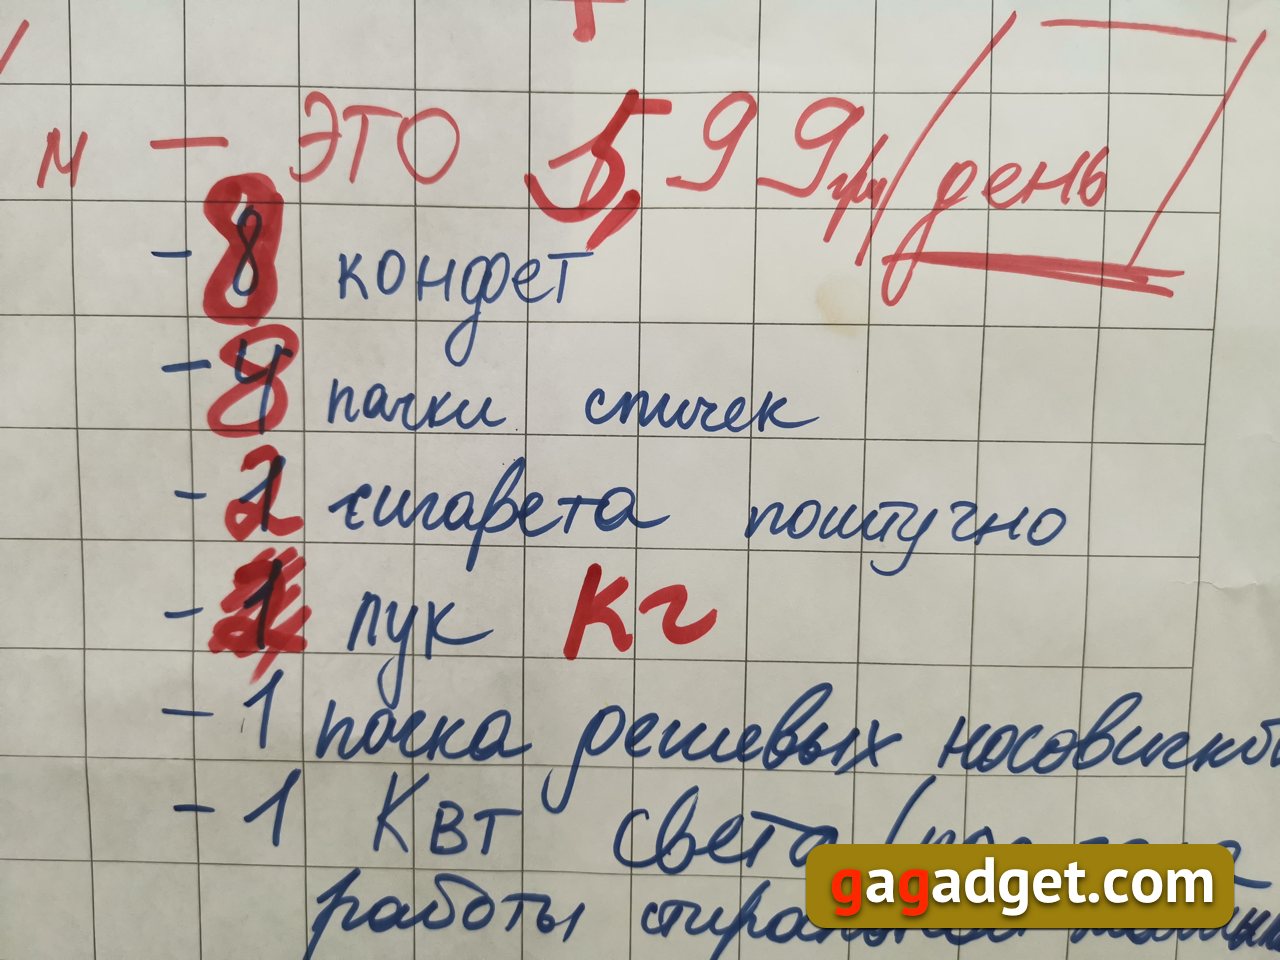 м — ЭТО 5,99 грн/день
- 8 конфет
- 8 пачки спичек
- 2 сигарета поштучно
- 1 лук Кг
- 1 пачка дешевых носовичков
- 1 Квт света (
работы стиральной
gagadget.com